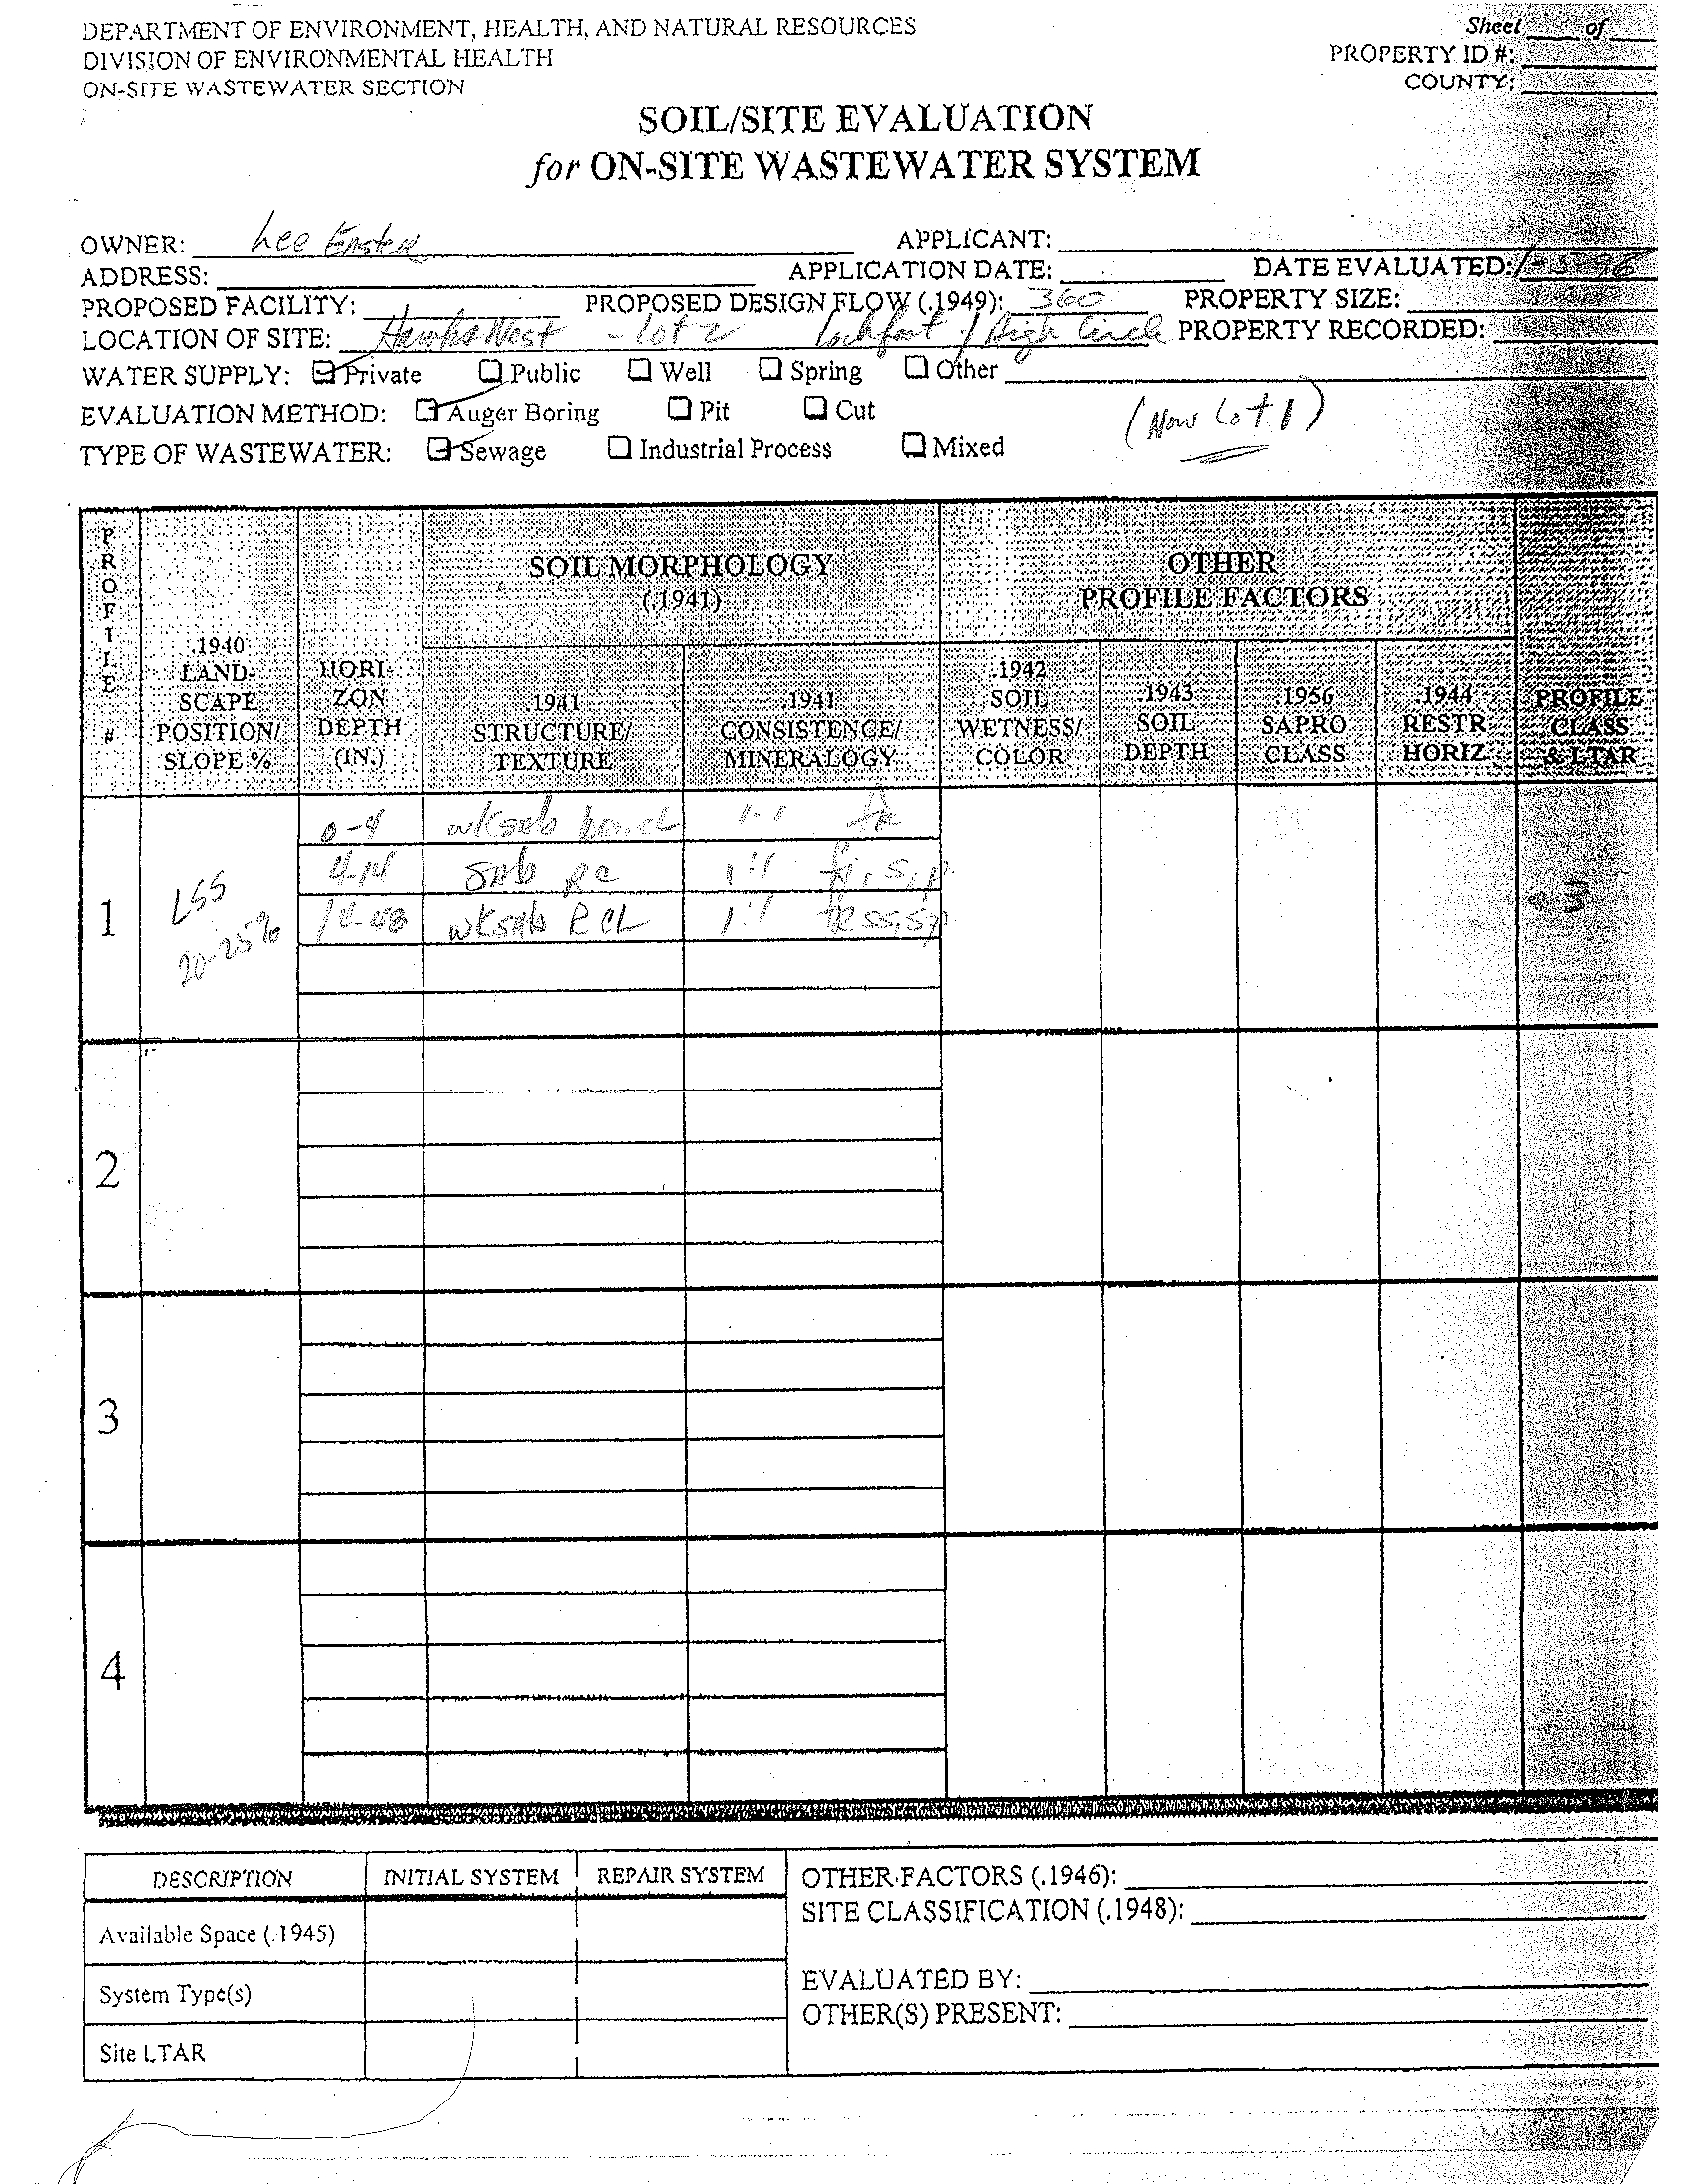 DEPARTMENT OF ENVIRONMENT, HEALTH, AND NATURAL RESOURCES
DIVISION OF ENVIRONMENTAL HEALTH
ON-SITE WASTEWATER SECTION
Sheet ____ of ____
PROPERTY ID #:
COUNTY:
SOIL/SITE EVALUATION
for ON-SITE WASTEWATER SYSTEM
OWNER: Lee APPLICANT:
ADDRESS: APPLICATION DATE: DATE EVALUATED:
PROPOSED FACILITY: PROPOSED DESIGN FLOW (.1949): 360 PROPERTY SIZE:
LOCATION OF SITE: Hawks Nest - Lot 2 / High Circle PROPERTY RECORDED:
WATER SUPPLY: Private Public Well Spring Other
EVALUATION METHOD: Auger Boring Pit Cut
(Now Lot 1)
TYPE OF WASTEWATER: Sewage Industrial Process Mixed
PROFILE #
.1940 LAND-SCAPE POSITION/ SLOPE %
HORI-ZON DEPTH (IN.)
SOIL MORPHOLOGY (.1941)
.1941 STRUCTURE/ TEXTURE
.1941 CONSISTENCE/ MINERALOGY
OTHER PROFILE FACTORS
.1942 SOIL WETNESS/ COLOR
.1943 SOIL DEPTH
.1956 SAPRO CLASS
.1944 RESTR HORIZ
PROFILE CLASS & LTAR
1
LSS
20-25%
0-4 wksab 1:1 fr
4-14 sab RC 1:1 fi, s, p
14-48 wksab R CL 1:1 fr ss, sp
.3
2
3
4
DESCRIPTION INITIAL SYSTEM REPAIR SYSTEM
Available Space (.1945)
System Type(s)
Site LTAR
OTHER FACTORS (.1946):
SITE CLASSIFICATION (.1948):
EVALUATED BY:
OTHER(S) PRESENT: